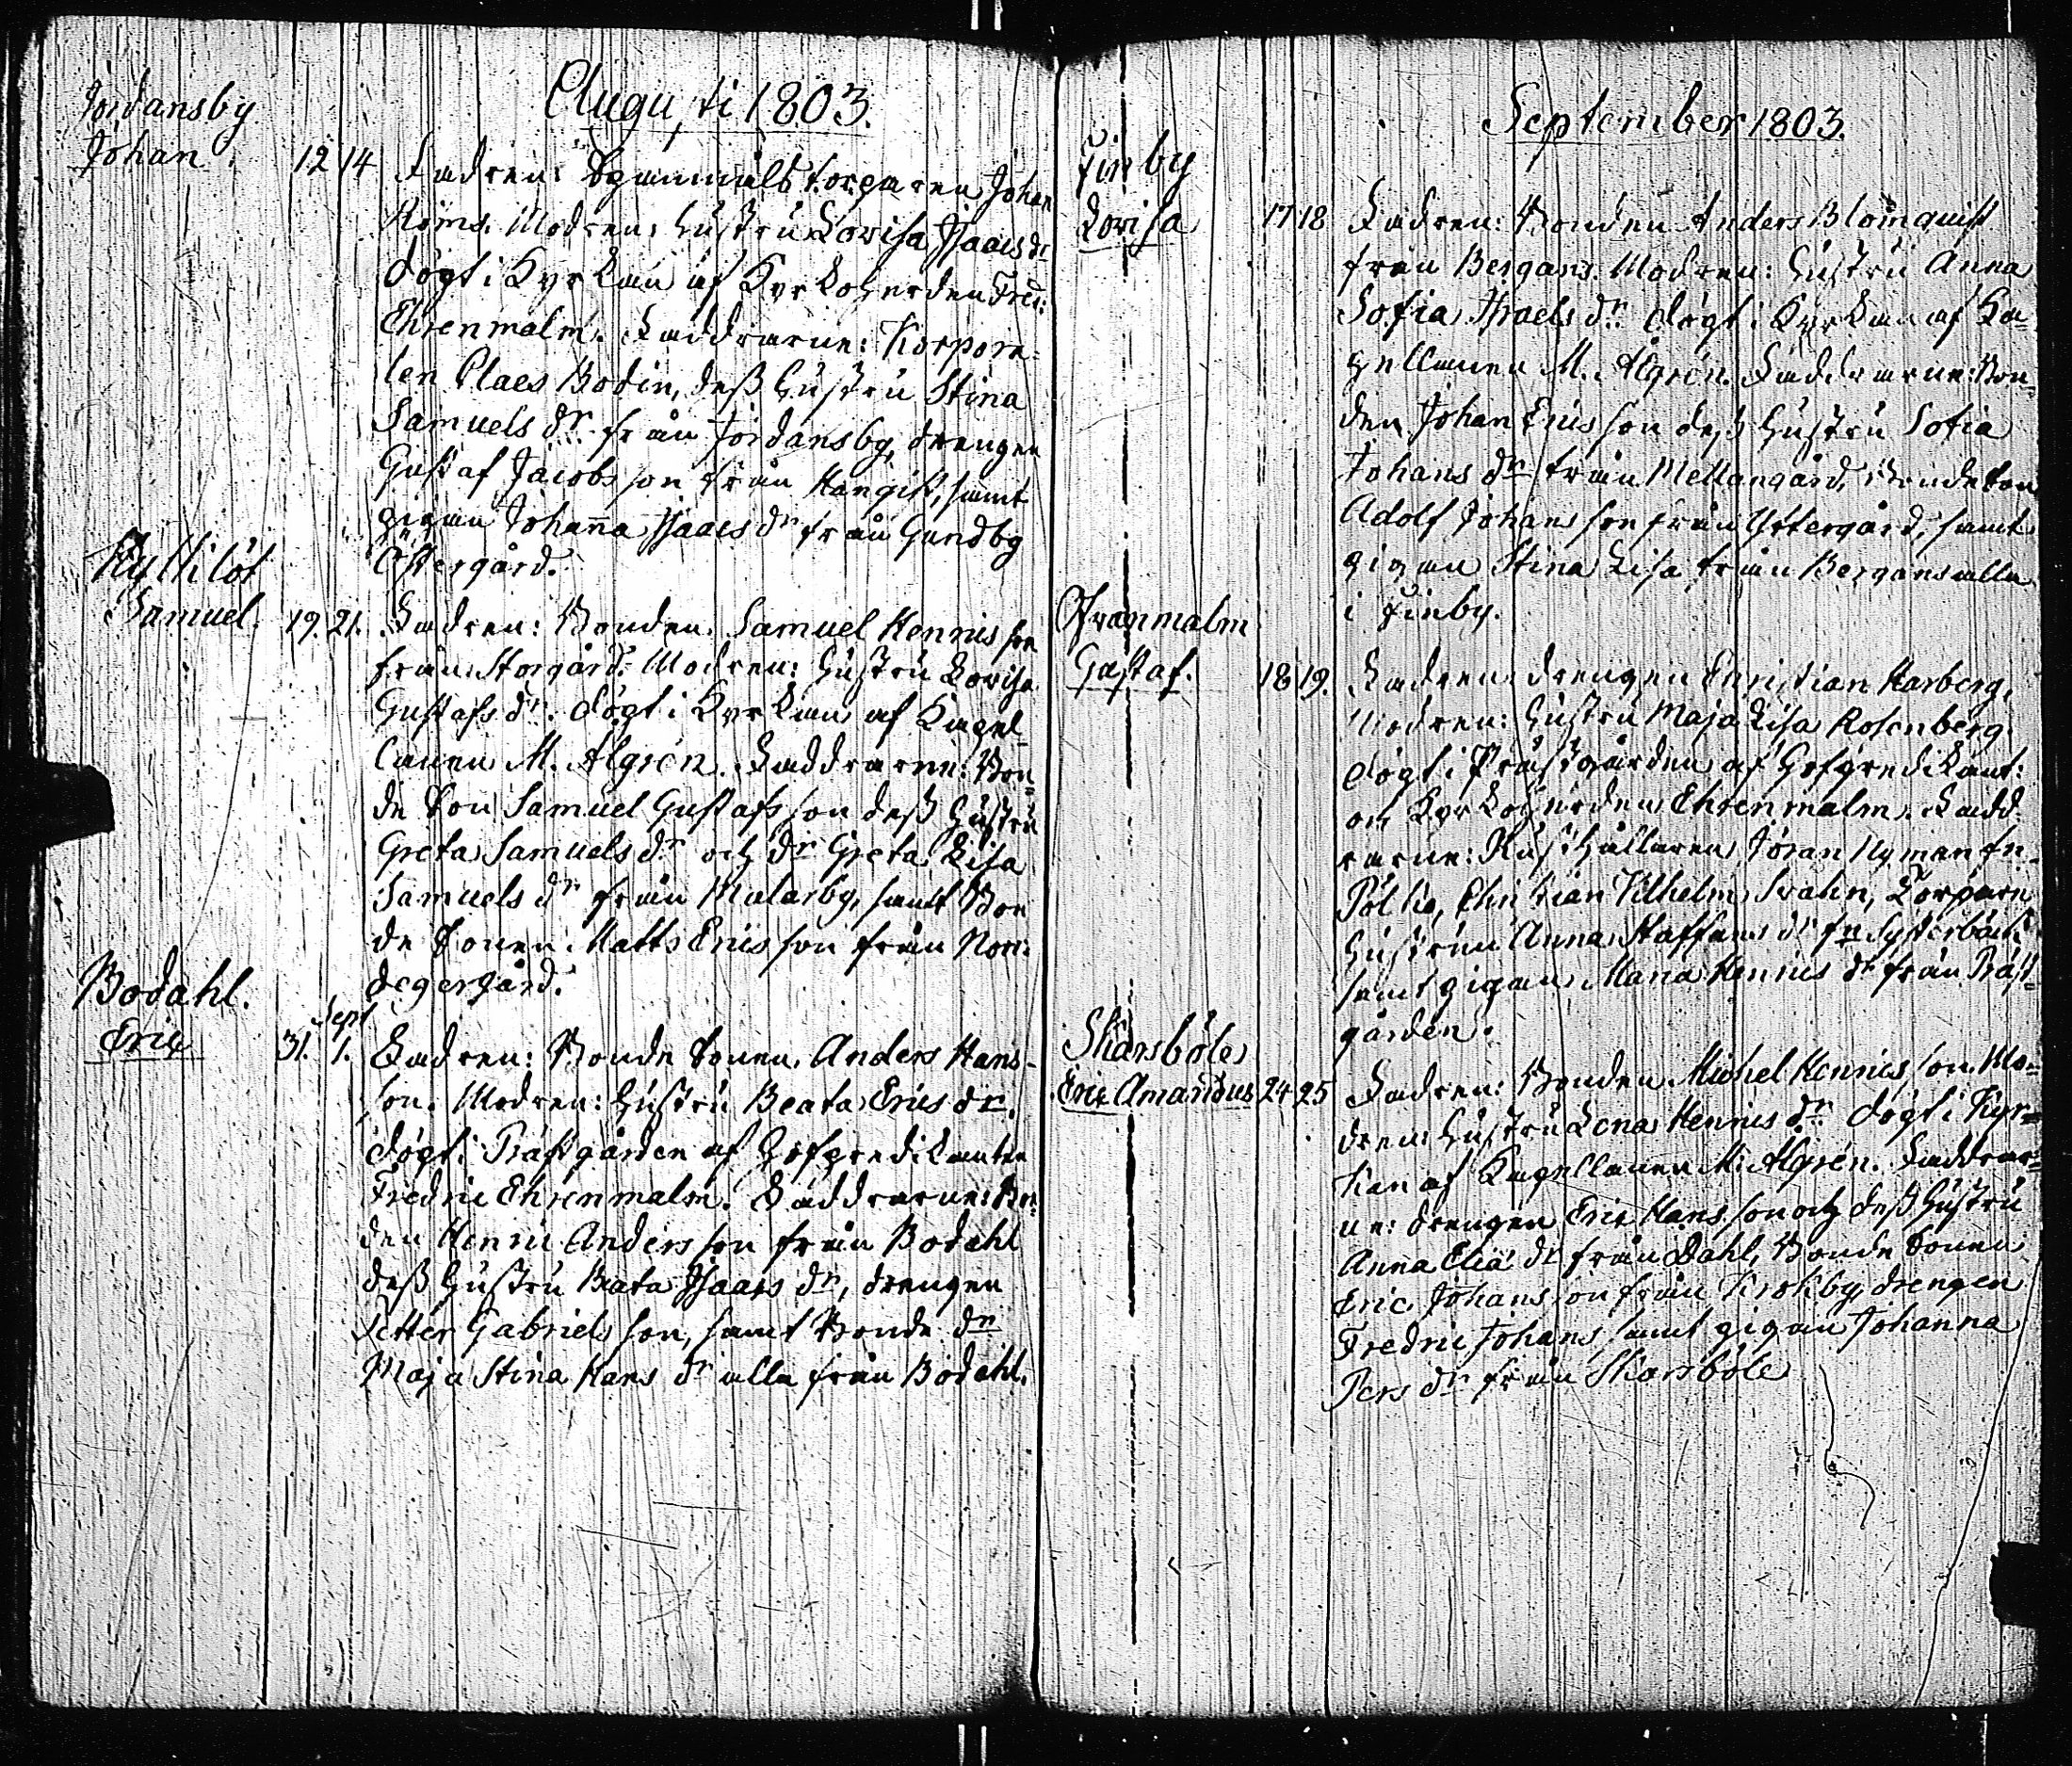 Augusti 1803.
Jordansby
Johan. 12 14 Fadren: torparen Johan
Röms. Modren: Hustru Lovisa Isaacs dr
döpt i Kyrkan af Kyrkoherden Fred:
Ehrenmalm. Faddrarne: Korpora-
len Claes Bodin, dess Hustru Stina
Samuels dr från Jordansby, drengen
Gustaf Jacobsson från Kangist, samt
pigan Johanna Isaacs dr från Gundby
Östergård.
Kyttilöt
Samuel. 19. 21. Fadren: Bonden Samuel Henrics son
från Storgård. Modren: Hustru Lovisa
Gustafs dr. döpt i Kyrkan af Kapel-
lanen M. Algrén. Faddrarne: Bon-
de Son Samuel Gustafsson dess Hustru
Greta Samuels dr och dr Greta Lisa
Samuels dr från Malarby, samt Bon
de Sonen Matts Erics son från Norr-
degergård.
Bodahl.
Eric 31. Sept 1. Fadren: Bonde Sonen Anders Hans-
son. Modren: Hustru Beata Erics dr.
döpt i Prästgården af Hofpredikanten
Fredric Ehrenmalm. Faddrarne: Bon-
den Henric Andersson från Bodahl
dess Hustru Beata Isaacs dr, drengen
Petter Gabrielsson, samt Bonde dr
Maja Stina Hans dr alla från Bodahl.
September 1803.
Finby
Lovisa 17 18 Fadren: Bonden Anders Blomquist
från Bergans. Modren: Hustru Anna
Sofia Israels dr. döpt i Kyrkan af Ka-
pellanen M. Algrén. Faddrarne: Bon-
den Johan Ericsson dess Hustru Sofia
Johans dr från Mellangård, Bonde Son
Adolf Johansson från Yttergård, samt
pigan Stina Lisa från Bergans alla
i Finby.
Ofvanmalm
Gustaf. 18 19. Fadren drengen Christian Karberg,
Modren: Hustru Maja Lisa Rosenberg.
döpt i Prästgården af Hofpredikant:
och Kyrkoherden Ehrenmalm. Fadd-
rarne: Rusthållaren Jöran Nyman från
Pölkö, Christian Vilhelm Svahn, Torpare
Hustrun Anna Staffans dr från Systerbäck
samt pigan Maria Henrics dr från Präst-
gården.
Skarsböle
Eric Amandus 24 25 Fadren: Bonden Michel Henrics son. Mo-
dren: Hustru Lena Henrics dr. döpt i Kyr-
kan af Kapellanen M. Algrén. Faddrar-
ne: drengen Eric Hans son och dess Hustru
Anna Eliæ dr från Dahl, Bonde Sonen
Eric Johansson från Krokby, drengen
Fredric Johans samt pigan Johanna
Pers dr från Skarsböle